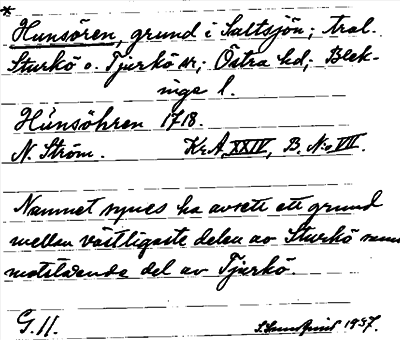 * Hunsören, grund i Saltsjön; tral.
Sturkö o. Tjurkö sr; Östra hd; Blek-
inge l.
Hünsöhren 1718.
N. Ström. KrA XXIV, B. No VII.
Namnet synes ha avsett ett grund
mellan västligaste delen av Sturkö samt
motstående del av Tjurkö.
G. II. 1937.